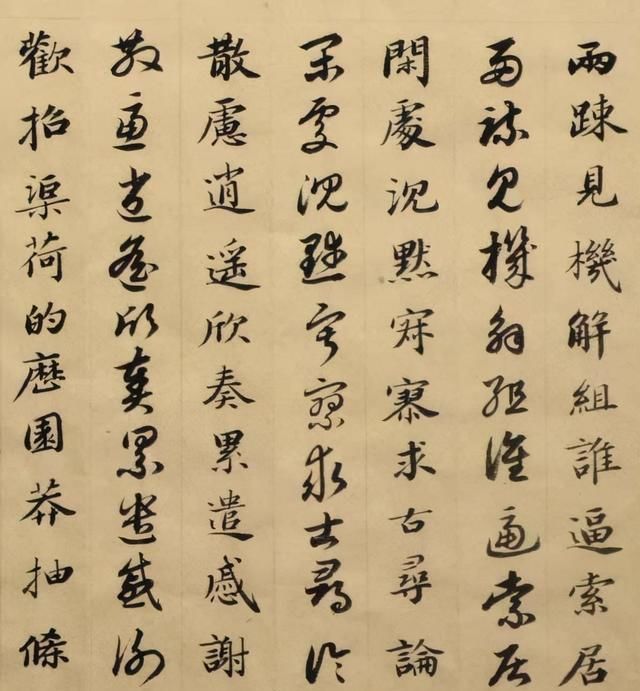 兩踈見機解組誰逼索居
兩踈見機解組誰逼索居
閑處沉默寂寥求古尋論
閑處沉默寂寥求古尋論
散慮逍遥欣奏累遣慼謝
散慮逍遥欣奏累遣慼謝
歡招渠荷的歷園莽抽條